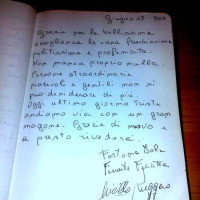 Giugno 17
Grazie per la bellissima
accoglienza la casa
pulitissima e profumata.
Non manca proprio nulla.
Persone straordinarie
piacevoli e gentili non si
può desiderare di più
Oggi ultimo giorno triste
andiamo via con un gran
magone. Grazie di nuovo e
a presto rivederci.
Ruggero